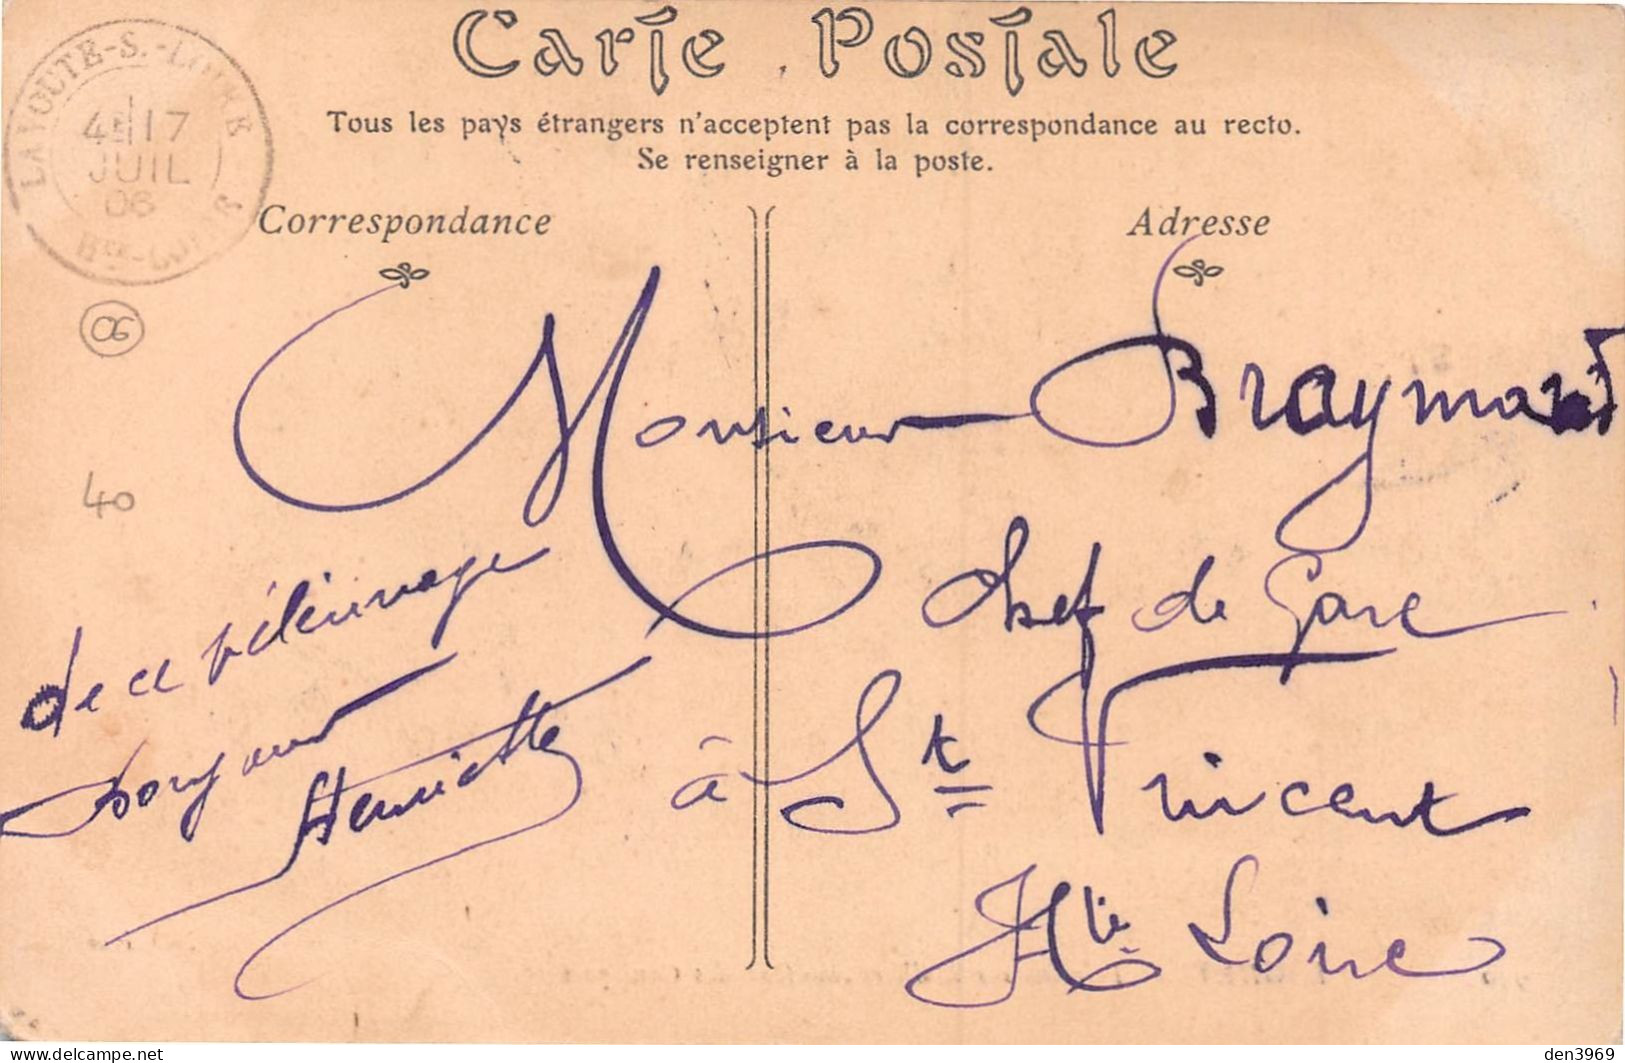 Carte Postale
Tous les pays étrangers n'acceptent pas la correspondance au recto.
Se renseigner à la poste.
LAVOUTE-S.-LOIRE
4E 17
JUIL
06
Hte-LOIRE
Correspondance
Adresse
06
40
Monsieur Braymand
Chef de Gare
à St Vincent
Hte Loire
de ce pélerinage
bonjour
Henriette
den3969